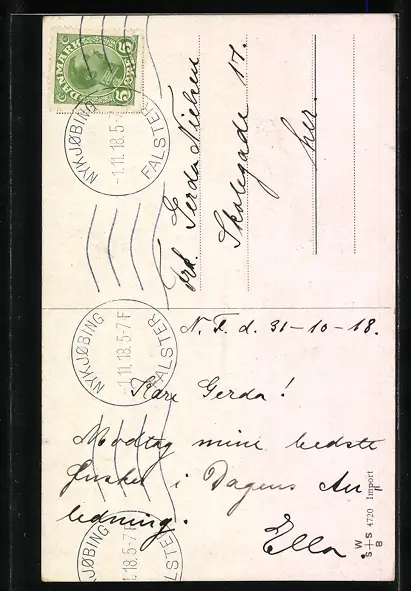 DANMARK
5 5
NYKJØBING
-1.11.18.5-
FALSTER
Frk. Gerda Nielsen
Skolegade 17.
her.
NYKJØBING
-1.11.18.5-7 F
FALSTER
N. F. d. 31-10-18.
Kære Gerda!
Modtag mine bedste
Ønsker i Dagens An
ledning.
Ella.
KJØBING
1.18.5-7 F
FALSTE
W
S+S 4720 Import
B